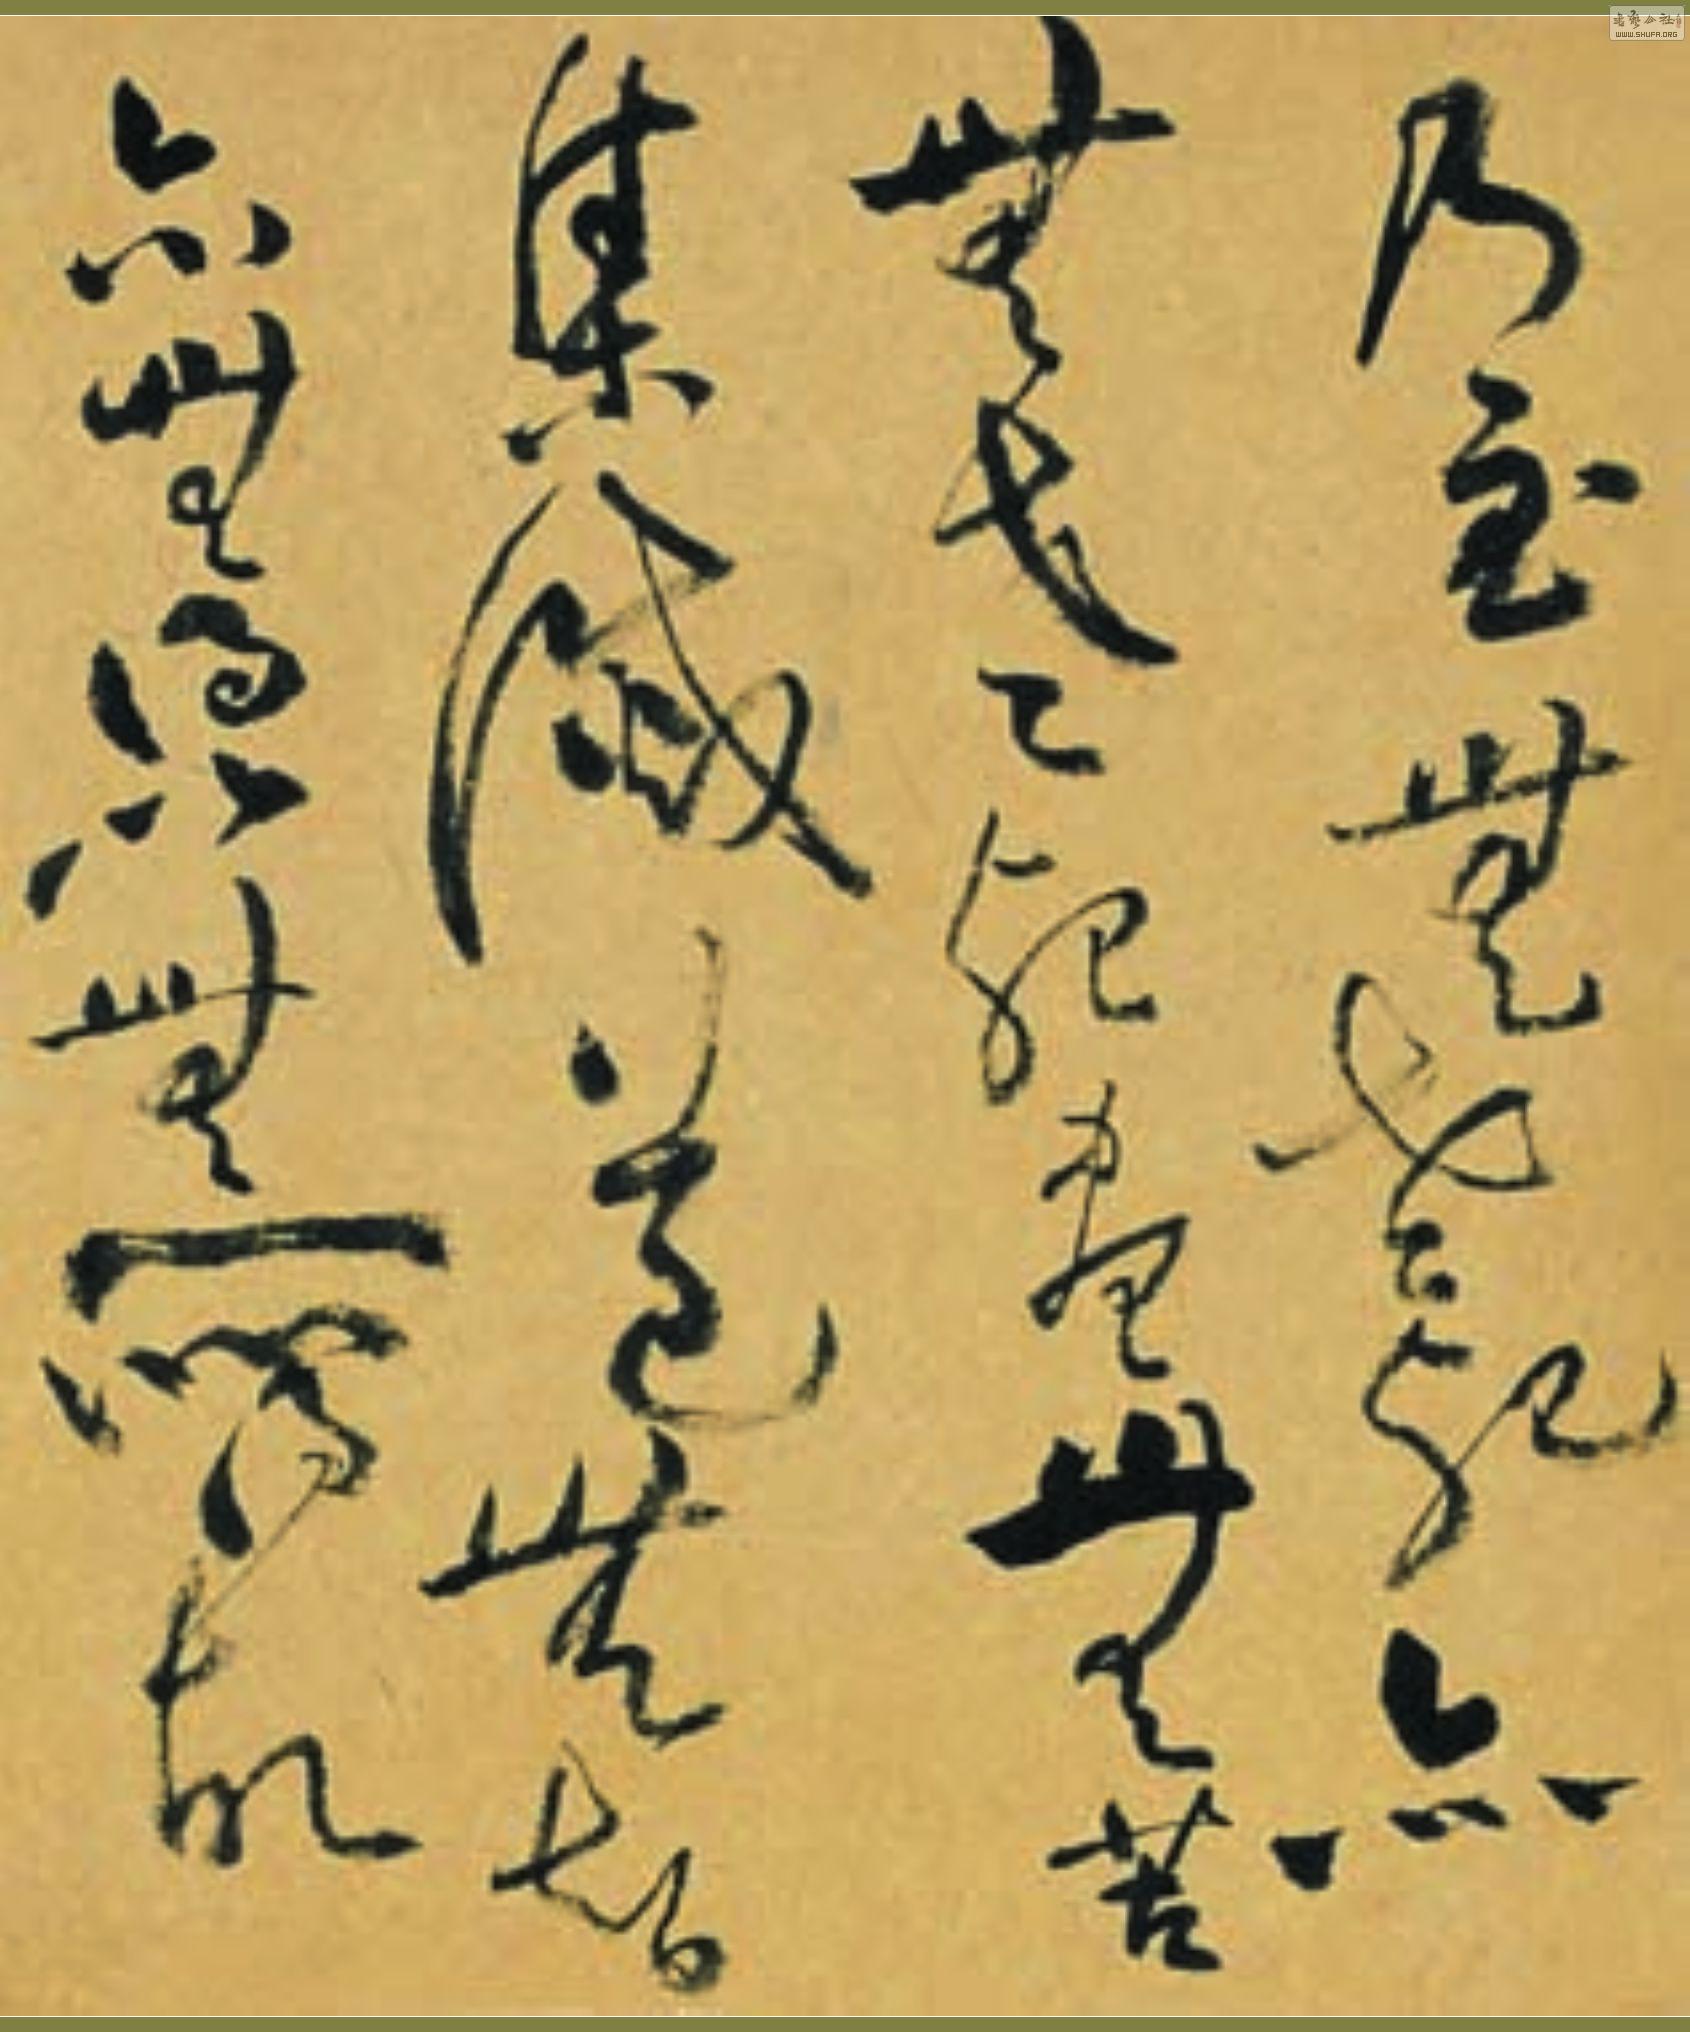 乃至無老死亦
無老死盡無苦
集滅道無智
亦無得以無所得故
WWW.SHUFA.ORG